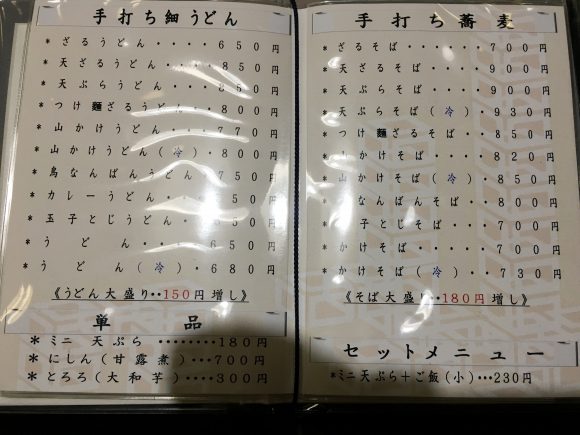 手打ち細うどん
* ざるうどん・・・・650円
* 天ざるうどん・・・850円
* 天ぷらうどん・・・850円
* つけ麺ざるうどん・・800円
* 山かけうどん・・・770円
* 山かけうどん(冷)・800円
* 鳥なんばんうどん・750円
* カレーうどん
* 玉子とじうどん・
* うどん・・・650円
* うどん(冷)・680円
《うどん大盛り・・150円増し》
単品
*ミニ 天ぷら ・・・・・・・・180円
*にしん(甘露煮)・・・700円
*とろろ(大和芋)・・・300円
手打ち蕎麦
* ざるそば・・・・・700円
* 天ざるそば・・・・900円
* 天ぷらそば・・・・900円
* 天ぷらそば(冷)・930円
* つけ麺ざるそば・・850円
* 山かけそば・・・・820円
* 山かけそば(冷)・850円
なんばんそば・・800円
子とじそば・・・700円
* かけそば・・・・・700円
* かけそば(冷)・・730円
《そば大盛り・・180円増し》
セットメニュー
*ミニ天ぷら+ご飯(小)・・・230円